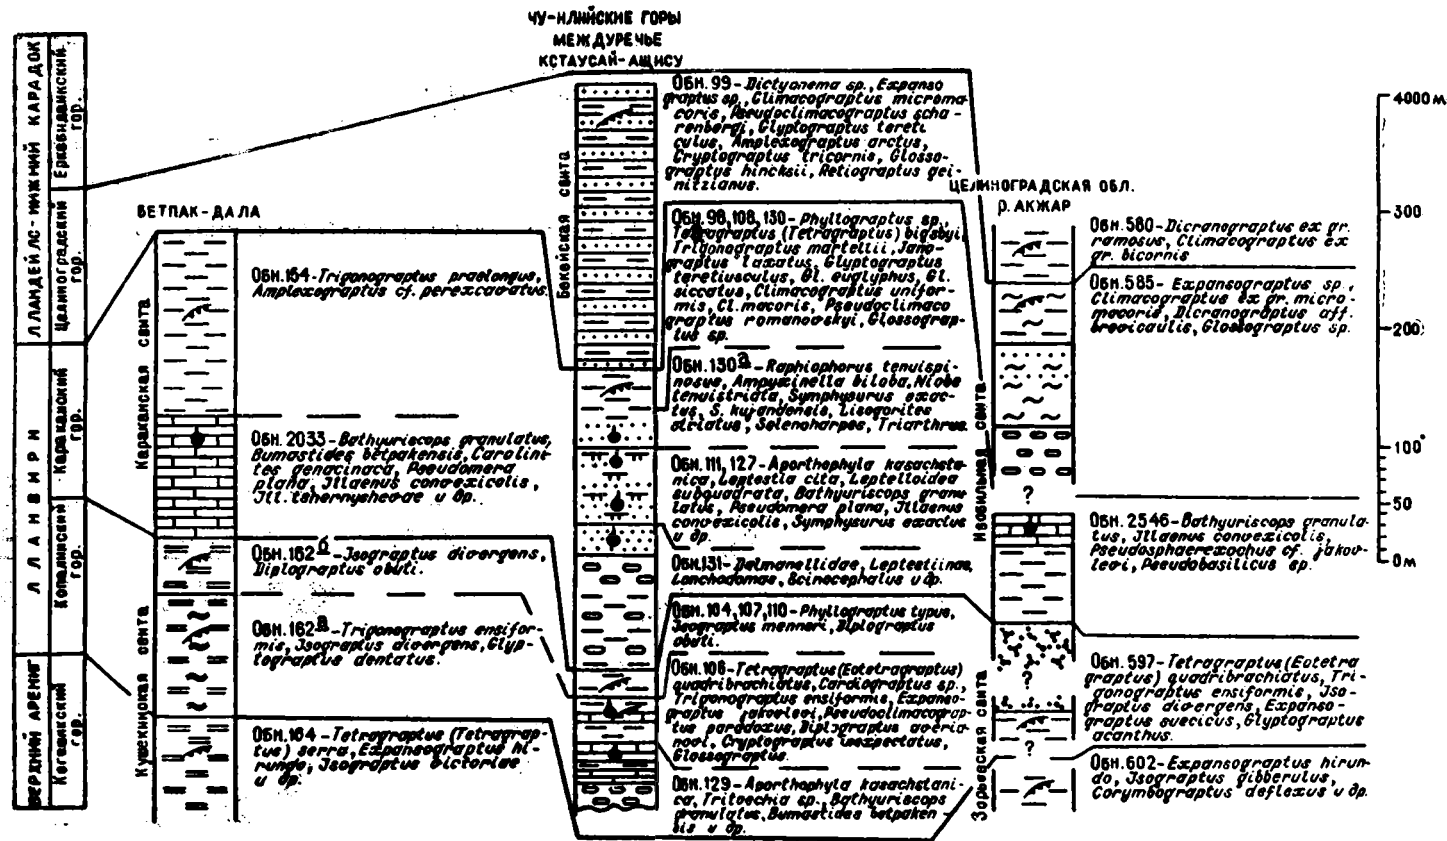 ЧУ-ИЛИЙСКИЕ ГОРЫ
МЕЖДУРЕЧЬЕ
КСТАУСАЙ-АЩИСУ
ЛЛАНДЕЙЛС-НИЖНИЙ КАРАДОК
Еркебидаикский
гор.
Целиноградский
гор.
ЛЛАНВИРН
Караканский
гор.
Копалинский
гор.
ВЕРХНИЙ АРЕНИГ
Когашикский
гор.
БЕТПАК-ДАЛА
Караканская свита
Кушекинская свита
Обн. 164-Trigonograptus praelongus,
Amplexograptus cf. perexcavatus.
Обн. 2033-Bathyuriscops granulatus,
Bumastides betpakensis, Carolini-
tes genacinaca, Pseudomera
plana, Illaenus convexicolis,
Ill. tchernyshevae и др.
Обн. 162б-Isograptus divergens,
Diplograptus obuti.
Обн. 162а-Trigonograptus ensifor-
mis, Isograptus divergens, Glyp-
tograptus dentatus.
Обн. 164-Tetragraptus (Tetragrap-
tus) serra, Expansograptus hi-
rundo, Isograptus victoriae
и др.
Бекейская свита
Обн. 99-Dictyonema sp., Expanso
graptus sp., Climacograptus microma
coris, Pseudoclimacograptus scha-
renbergi, Glyptograptus tereti
culus, Amplexograptus arctus,
Cryptograptus tricornis, Glosso-
graptus hincksii, Retiograptus gei-
nitzianus.
Обн. 98, 108, 130-Phyllograptus sp.,
Tetragraptus (Tetragraptus) bigsbyi,
Trigonograptus martellii, Jano-
graptus laxatus, Glyptograptus
teretiusculus, Gl. euglyphus, Gl.
siccatus, Climacograptus unifor-
mis, Cl. macoris, Pseudoclimaco
graptus romanovskyi, Glossograp-
tus sp.
Обн. 130а-Raphiophorus tenuispi-
nosus, Ampyxinella biloba, Niobe
tenuistriata, Symphysurus exac-
tus, S. kujandensis, Lisogorites
striatus, Selenoharpes, Triarthrus.
Обн. 111, 127-Aporthophyla kasachsta-
nica, Leptestia cita, Leptelloidea
subquadrata, Bathyuriscops granu
latus, Pseudomera plana, Illaenus
convexicolis, Symphysurus exactus
и др.
Обн. 131-Dalmanellidae, Leptestiinae,
Lonchodomas, Scinocephalus и др.
Обн. 104, 107, 110-Phyllograptus typus,
Isograptus menneri, Diplograptus
obuti.
Обн. 106-Tetragraptus (Eotetragraptus)
quadribrachiatus, Cardiograptus sp.,
Trigonograptus ensiformis, Expanso-
graptus jakovlevi, Pseudoclimacograp-
tus paradoxus, Diplograptus averia-
novi, Cryptograptus inexpectatus,
Glossograptus.
Обн. 129-Aporthophyla kasachstani-
ca, Tritoechia sp., Bathyuriscops
granulatus, Bumastides betpaken-
sis и др.
ЦЕЛИНОГРАДСКАЯ ОБЛ.
Р. АКЖАР
Изобильная свита
Зорьевская свита
?
?
?
Обн. 580-Dicranograptus ex gr.
ramosus, Climacograptus ex
gr. bicornis
Обн. 585-Expansograptus sp.,
Climacograptus ex gr. micro-
macoris, Dicranograptus aff.
brevicaulis, Glossograptus sp.
Обн. 2546-Bathyuriscops granula-
tus, Illaenus convexicolis,
Pseudosphaerexochus cf. jakov-
levi, Pseudobasilicus sp.
Обн. 597-Tetragraptus (Eotetra
graptus) quadribrachiatus, Tri-
gonograptus ensiformis, Iso-
graptus divergens, Expanso-
graptus suecicus, Glyptograptus
acanthus.
Обн. 602-Expansograptus hirun-
do, Isograptus gibberulus,
Corymbograptus deflexus и др.
4000 м
300
200
100
50
0 м